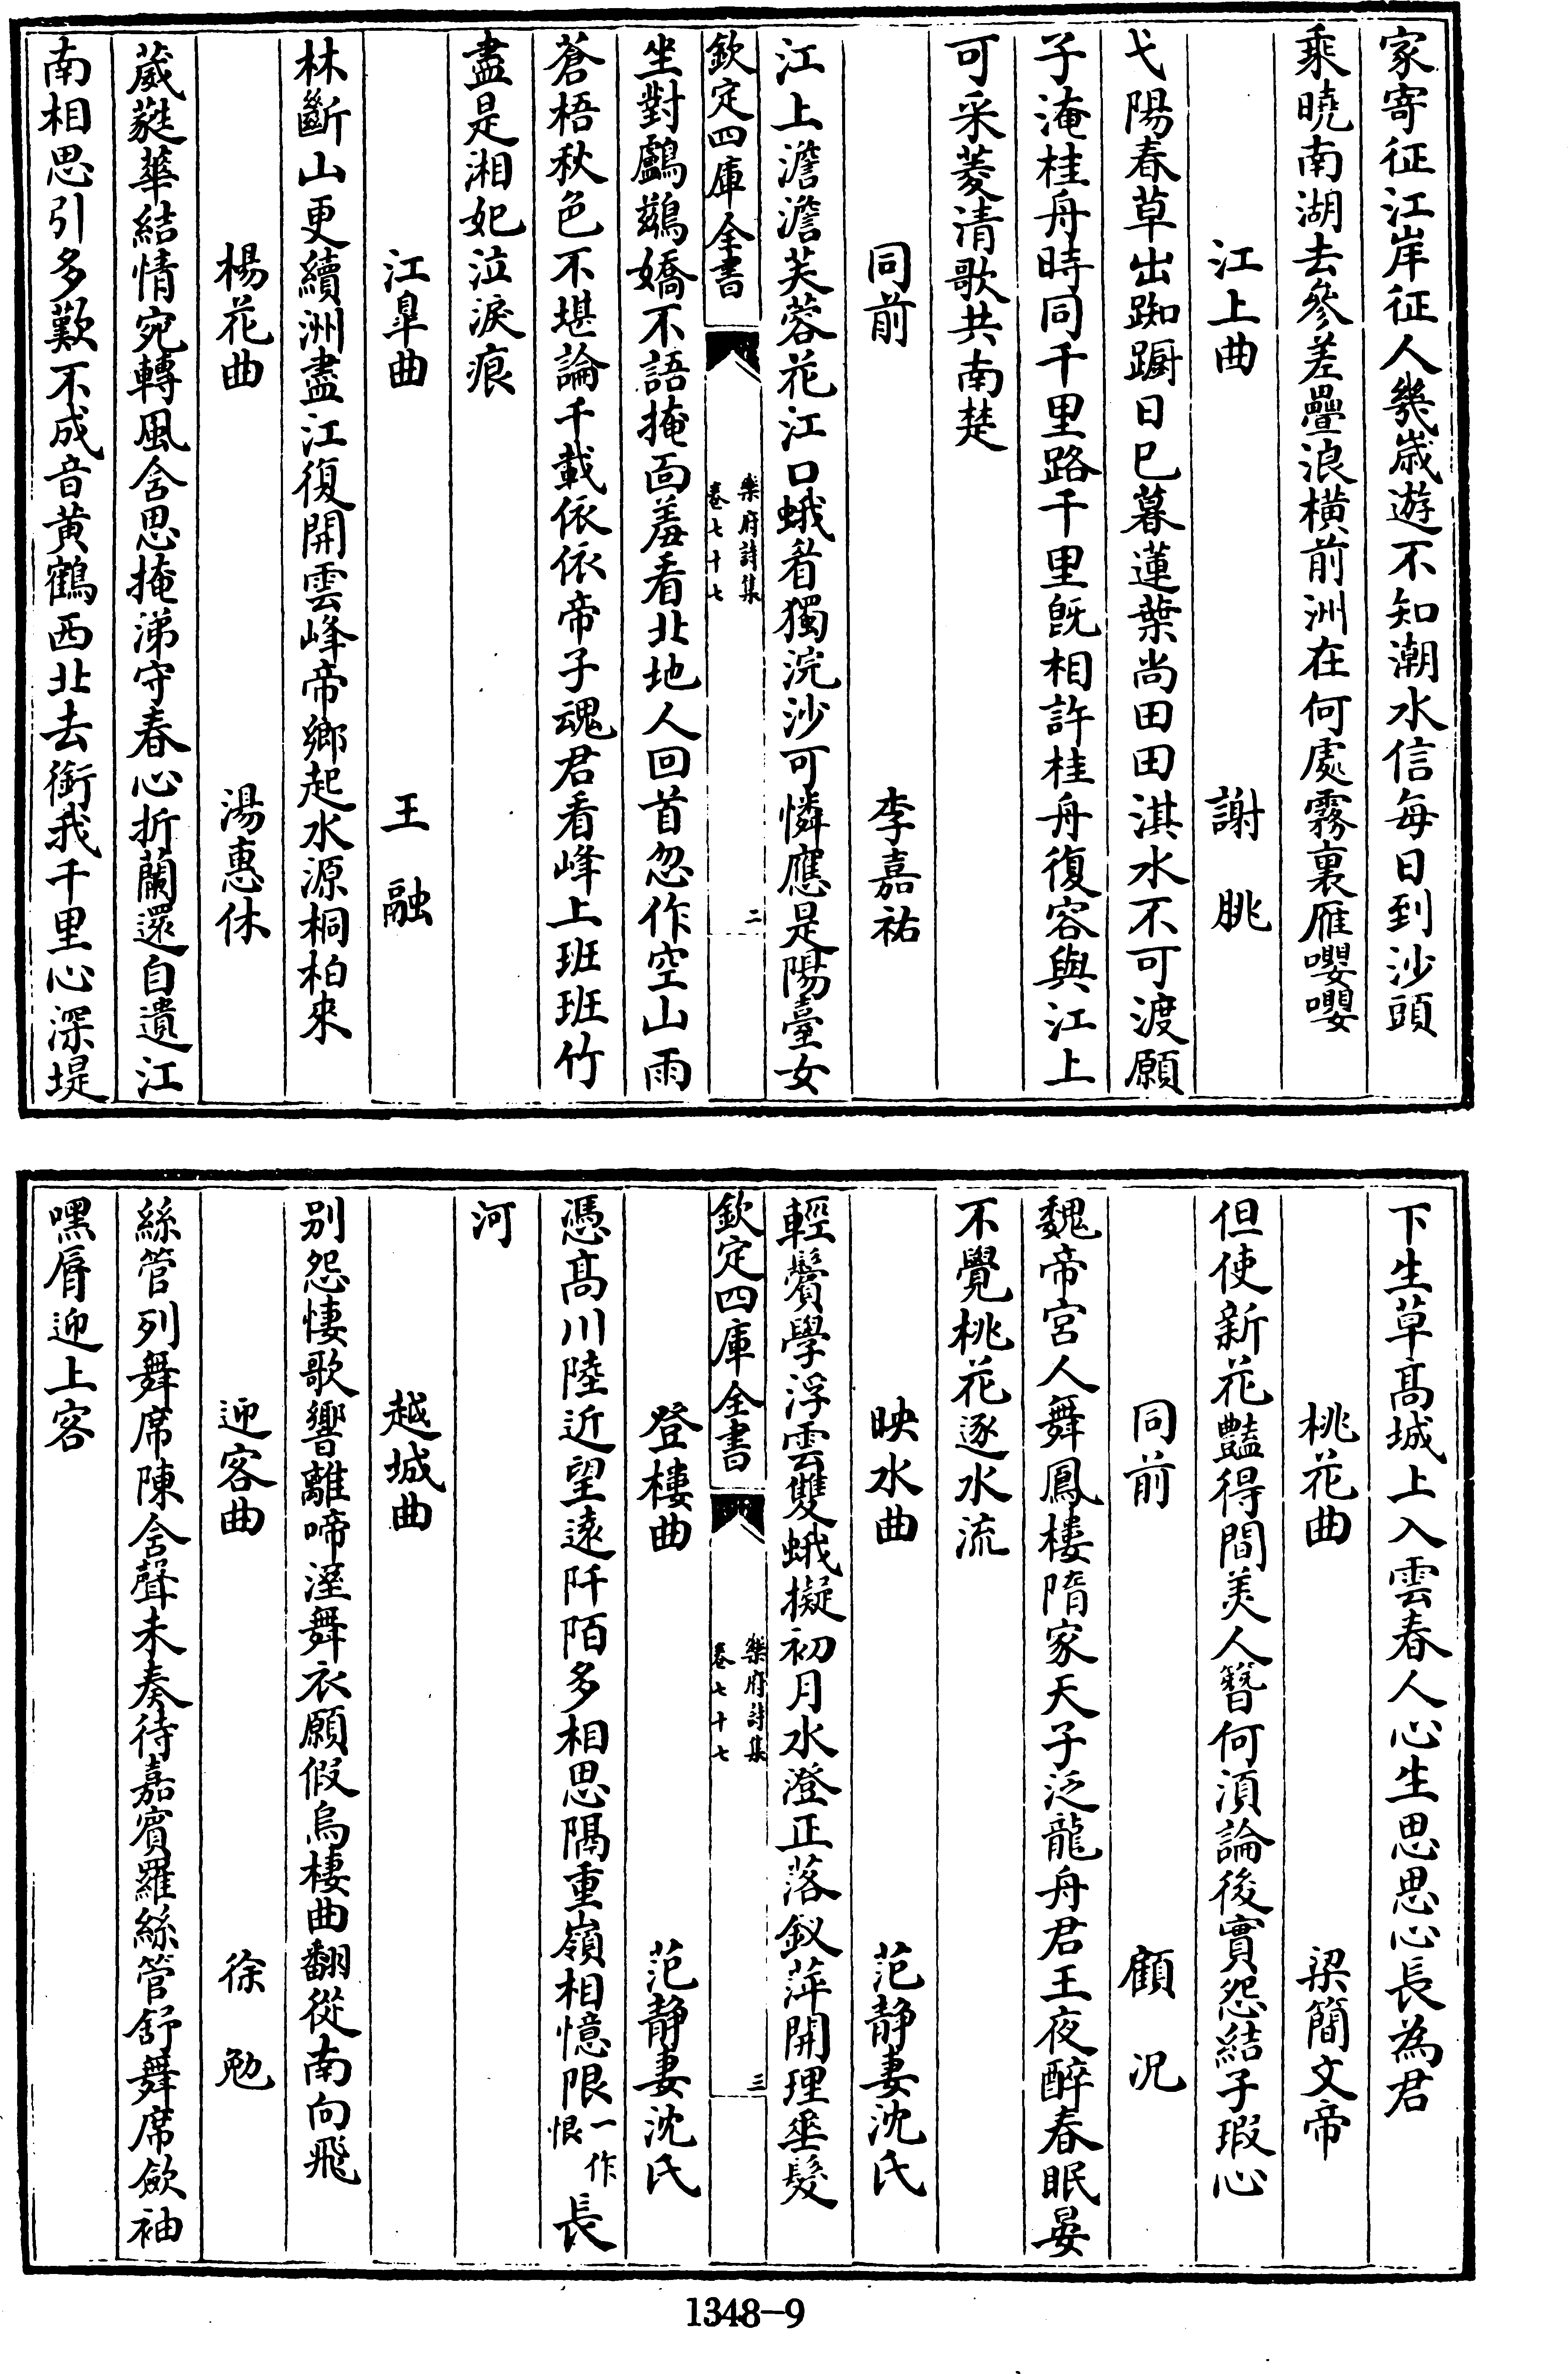 家寄征江岸征人幾歳遊不知潮水信每日到沙頭
乘曉南湖去參差疊浪橫前洲在何處霧裏雁嚶嚶
江上曲　謝朓
弋陽春草出踟躕日已暮蓮葉尚田田淇水不可渡願
子淹桂舟時同千里路千里旣相許桂舟復容與江上
可采菱清歌共南楚
同前　李嘉祐
江上澹澹芙蓉花江口蛾眉獨浣沙可憐應是陽臺女
欽定四庫全書
樂府詩集
卷七十七
二
坐對鸕鷀嬌不語掩面羞看北地人回首忽作空山雨
蒼梧秋色不堪論千載依依帝子魂君看峰上班班竹
盡是湘妃泣淚痕
江臯曲　王融
林斷山更續洲盡江復開雲峰帝鄉起水源桐柏來
楊花曲　湯惠休
葳蕤華結情宛轉風含思掩涕守春心折蘭還自遺江
南相思引多歎不成音黄鶴西北去銜我千里心深堤
下生草髙城上入雲春人心生思思心長為君
桃花曲　梁簡文帝
但使新花豔得間美人簪何須論後實怨結子瑕心
同前　顧况
魏帝宮人舞鳳樓隋家天子泛龍舟君王夜醉春眠晏
不覺桃花逐水流
映水曲　范靜妻沈氏
輕鬢學浮雲雙蛾擬初月水澄正落釵萍開理垂髮
欽定四庫全書
樂府詩集
卷七十七
三
登樓曲　范靜妻沈氏
憑髙川陸近望遠阡陌多相思隔重嶺相憶限一作恨長
河
越城曲
别怨悽歌響離啼溼舞衣願假烏棲曲翻從南向飛
迎客曲　徐勉
絲管列舞席陳含聲未奏待嘉賓羅絲管舒舞席歛袖
嘿脣迎上客
1348-9